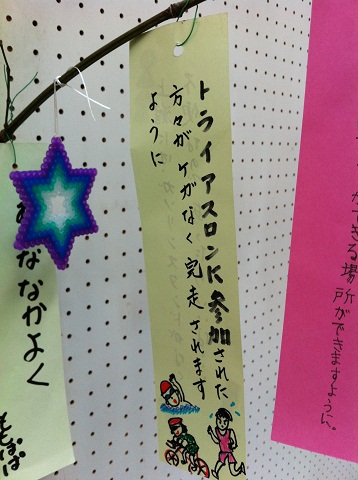 トライアスロンに参加された
方々がケガなく完走されます
ように
ができる場所ができますように。
なかよく